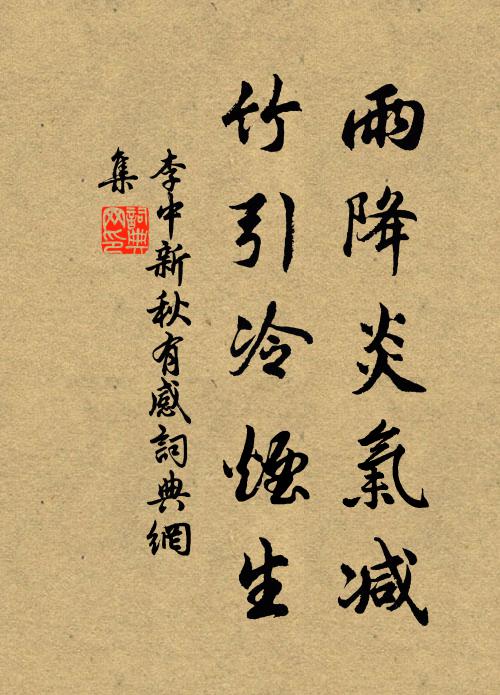 雨降炎氣减
竹引冷煙生
李中新秋有感詞典網
集
詞典
网印